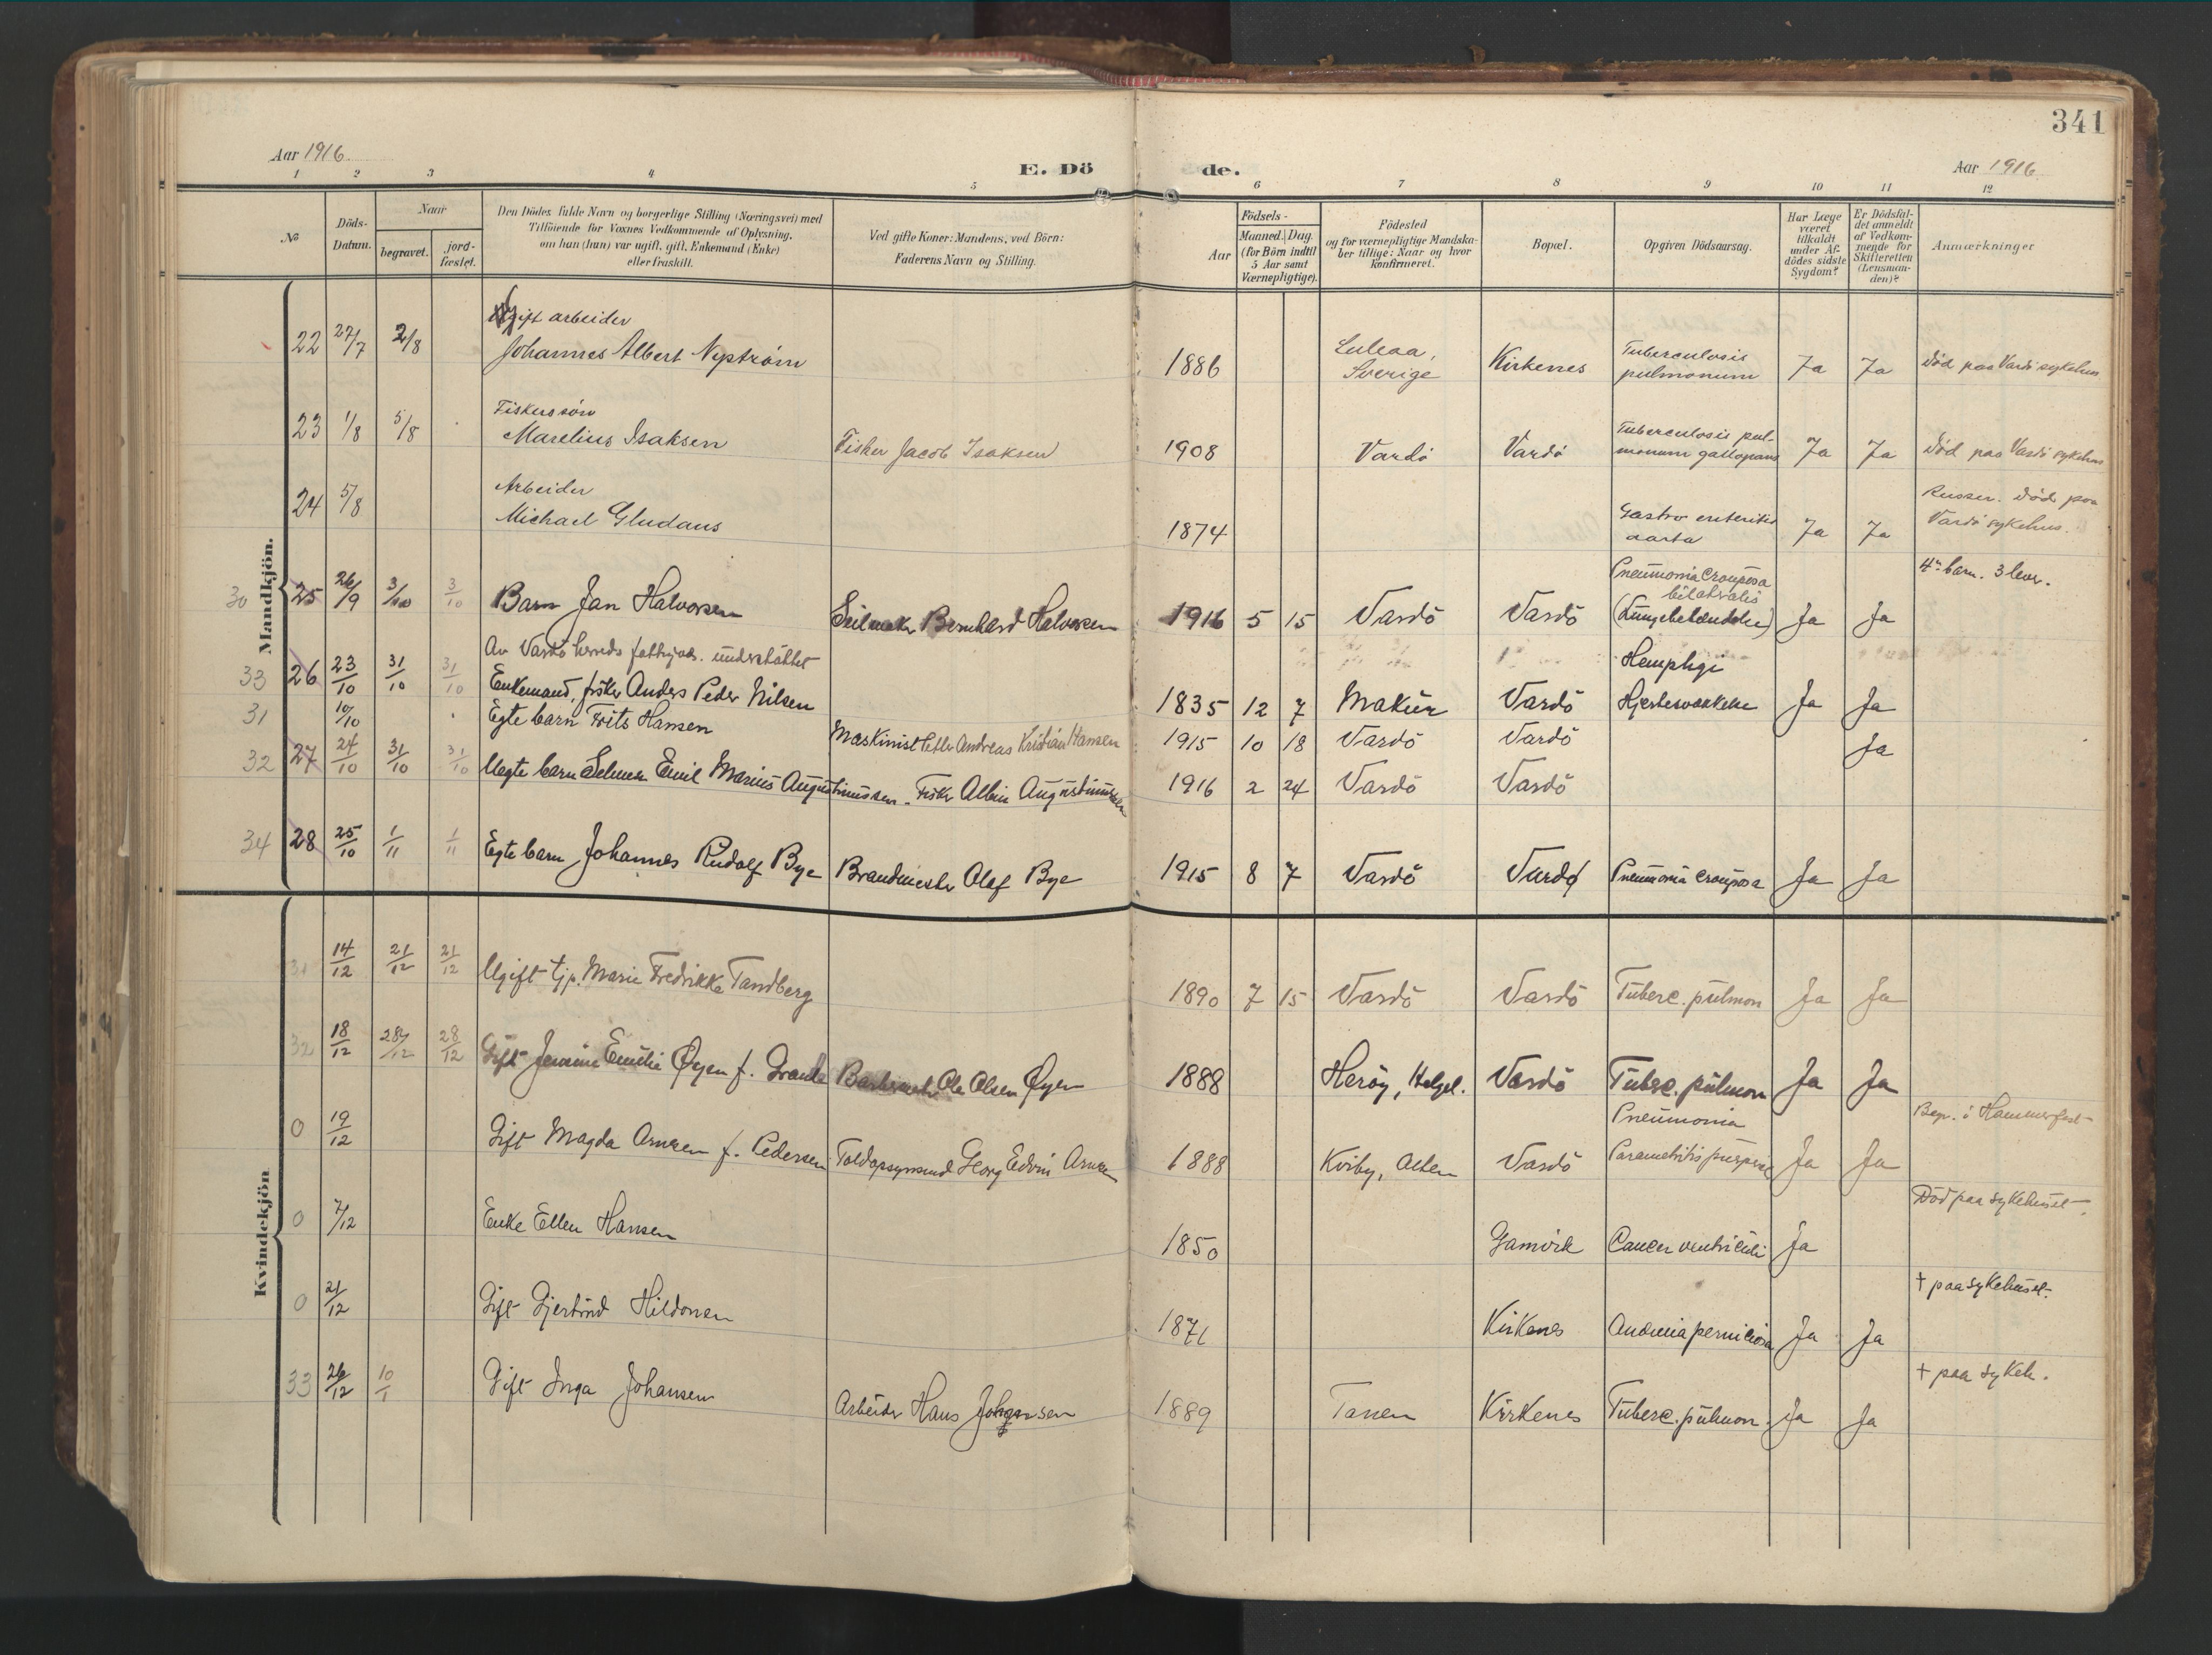 341
Aar 1916
E. Dö
de.
Aar 1916
1 2 3 4 5 6 7 8 9 10 11 12
№
Döds-
Datum.
Naar
begravet.
jord-
fæstet.
Den Dödes fulde Navn og borgerlige Stilling (Næringsvei) med
Tilföiende for Voxnes Vedkommende af Oplysning,
om han (hun) var ugift, gift, Enkemand (Enke)
eller fraskilt.
Ved gifte Koner: Mandens, ved Börn:
Faderens Navn og Stilling.
Aar
Födsels-
Maaned. Dag.
(for Börn indtil
5 Aar samt
Værnepligtige).
Födested
og for værnepligtige Mandska-
ber tillige: Naar og hvor
Konfirmeret.
Bopæl.
Opgiven Dödsaarsag.
Har Læge
været
tilkaldt
under Af-
dödes sidste
Sygdom?
Er Dödsfal-
det anmeldt
af Vedkom-
mende for
Skifteretten
(Lensman-
den)?
Anmærkninger
Mandkjön.
gift arbeider
22 27/7 2/8 Johannes Albert Nyström 1886 Luleaa, Sverige Kirkenes Tuberculosis pulmonum Ja Ja Död paa Vardö sykehus
Fiskerssön
23 1/8 5/8 Marelius Isaksen Fisker Jacob Isaksen 1908 Vardö Vardö Tuberculosis pul-
monum gallopans Ja Ja Död paa Vardö sykehus
Arbeider
24 5/8 Michael Gludans 1874 Gastro enteritis Ja Ja Russer. Död paa
Vardö sykehus.
30 25 26/9 3/10 3/10 Barn Jan Halvorsen Seilmaker Bernhard Halvorsen 1916 5 15 Vardö Vardö Pneumonia Crouposa
bilateralis
(Lungebetændelse) Ja Ja 4de barn. 3 lever.
Av Vardö herreds fattigvæs. understöttet
33 26 23/10 31/10 31/10 Enkemand, fisker Anders Peder Nilsen 1835 12 7 Makur Vardö Hjertesvækkelse Ja Ja
31 10/10 Egte barn Frits Hansen Maskinist Peder Andreas Kristian Hansen 1915 10 18 Vardö Vardö Ja
32 27 24/10 31/10 31/10 Uegte barn Selmer Emil Marius Augustinussen. Fisker Albin Augustinussen 1916 2 24 Vardö Vardö
34 28 25/10 1/11 1/11 Egte barn Johannes Rudolf Bye Brandmester Olaf Bye 1915 8 7 Vardö Vardö Pneumonia crouposa Ja Ja
Kvindekjön
31 14/12 21/12 21/12 Ugift tjp. Marie Fredrikke Tandberg 1890 7 15 Vardö Vardö Tuberc. pulmon Ja Ja
32 18/12 28/12 28/12 Gift Emilie Øyen f. Ole Olsen Øyen 1888 Heröy, Helgel. Vardö Tuberc. pulmon Ja Ja
0 19/12 Gift Magda Arnesen f. Pedersen Toldopsynsmand Georg Edvin Arnesen 1888 Kviby, Alten Vardö Pneumonia
Parametritis Ja Ja Begr. i Hammerfest
0 7/12 Enke Ellen Hansen 1850 Gamvik Cancer ventriculi Ja Död paa sykehuset.
0 21/12 Gift Gjertrud Hildonen 1871 Kirkenes Anæmia perniciosa Ja Ja † paa sykehuset.
33 26/12 10/1 Gift Inga Johansen Arbeider Hans Johansen 1889 Tanen Kirkenes Tuberc. pulmon. Ja Ja † paa sykeh.